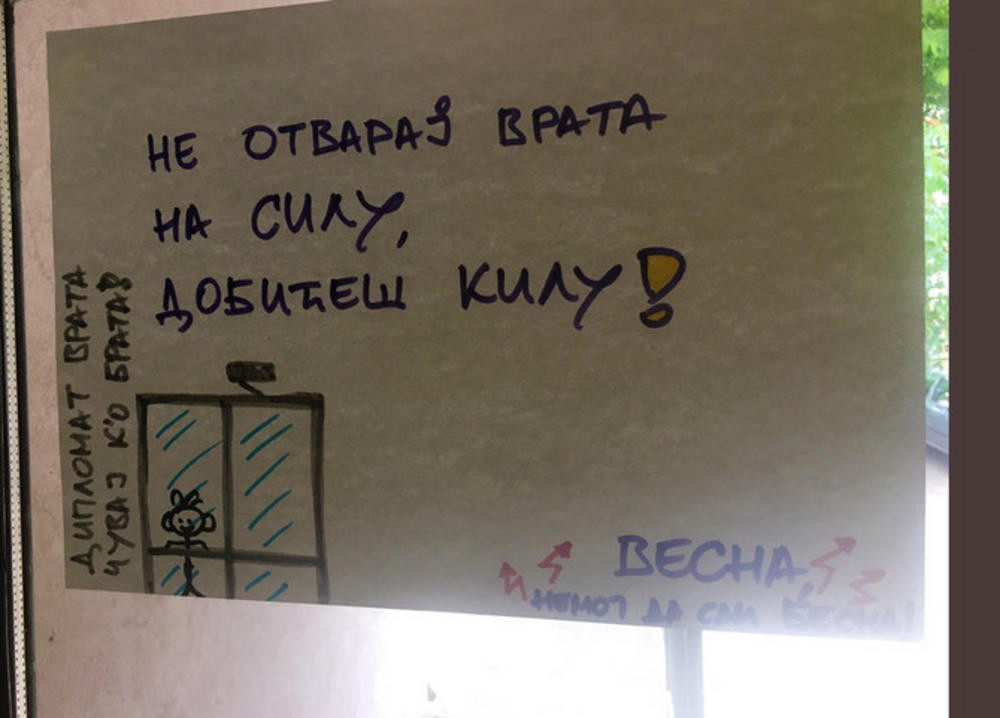 НЕ ОТВАРАЈ ВРАТА
НА СИЛУ,
ДОБИЋЕШ КИЛУ!
ДИПЛОМАТ ВРАТА
ЧУВАЈ К'О БРАТА!
ВЕСНА,
НЕМОЈ ДА СИ БЕСНА!